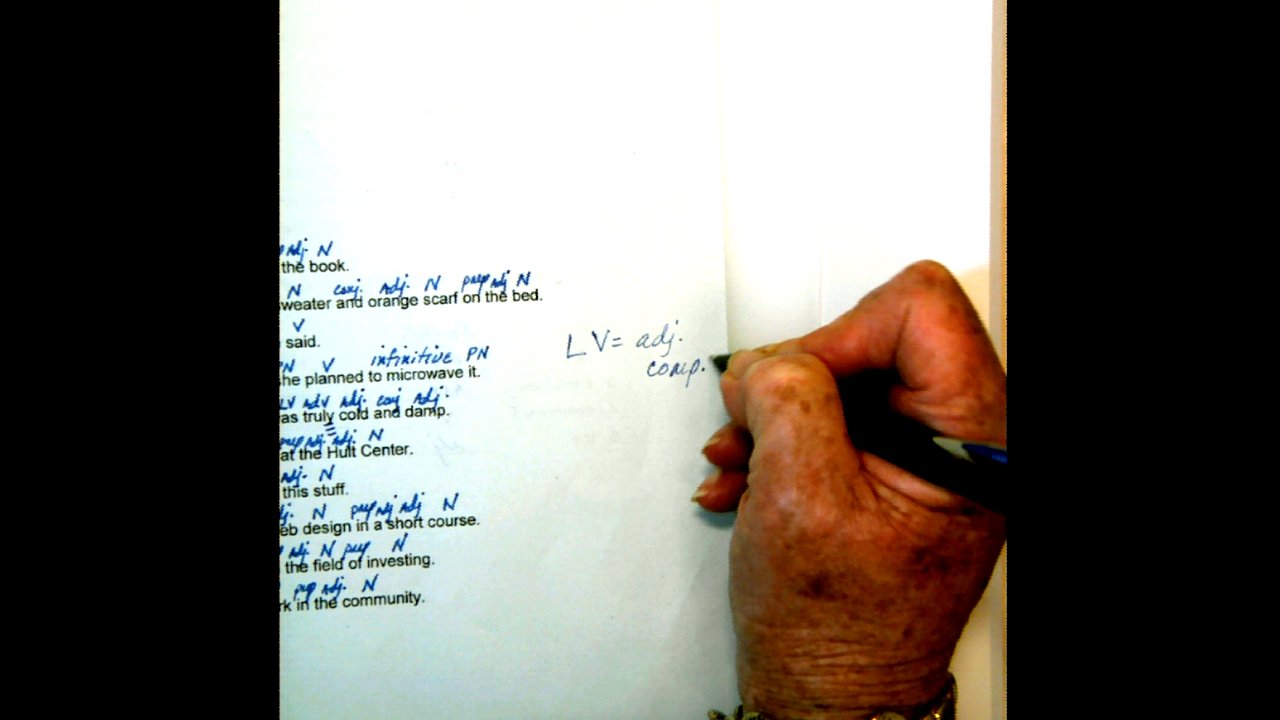 adj. N
the book.
N conj. adj. N prep adj N
sweater and orange scarf on the bed.
V
said.
PN V infinitive PN
she planned to microwave it.
LV = adj.
comp.
LV adv adj. conj adj.
as truly cold and damp.
prep adj. adj. N
at the Hult Center.
adj. N
this stuff.
adj. N prep adj adj N
eb design in a short course.
adj. N prep N
the field of investing.
prep adj. N
rk in the community.